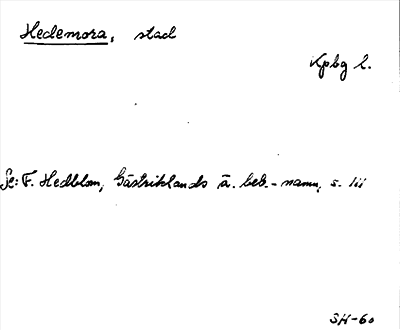 Hedemora, stad
Kpbg l.
Se: F. Hedblom, Gästriklands ä. beb.-namn, s. 111
SH-60